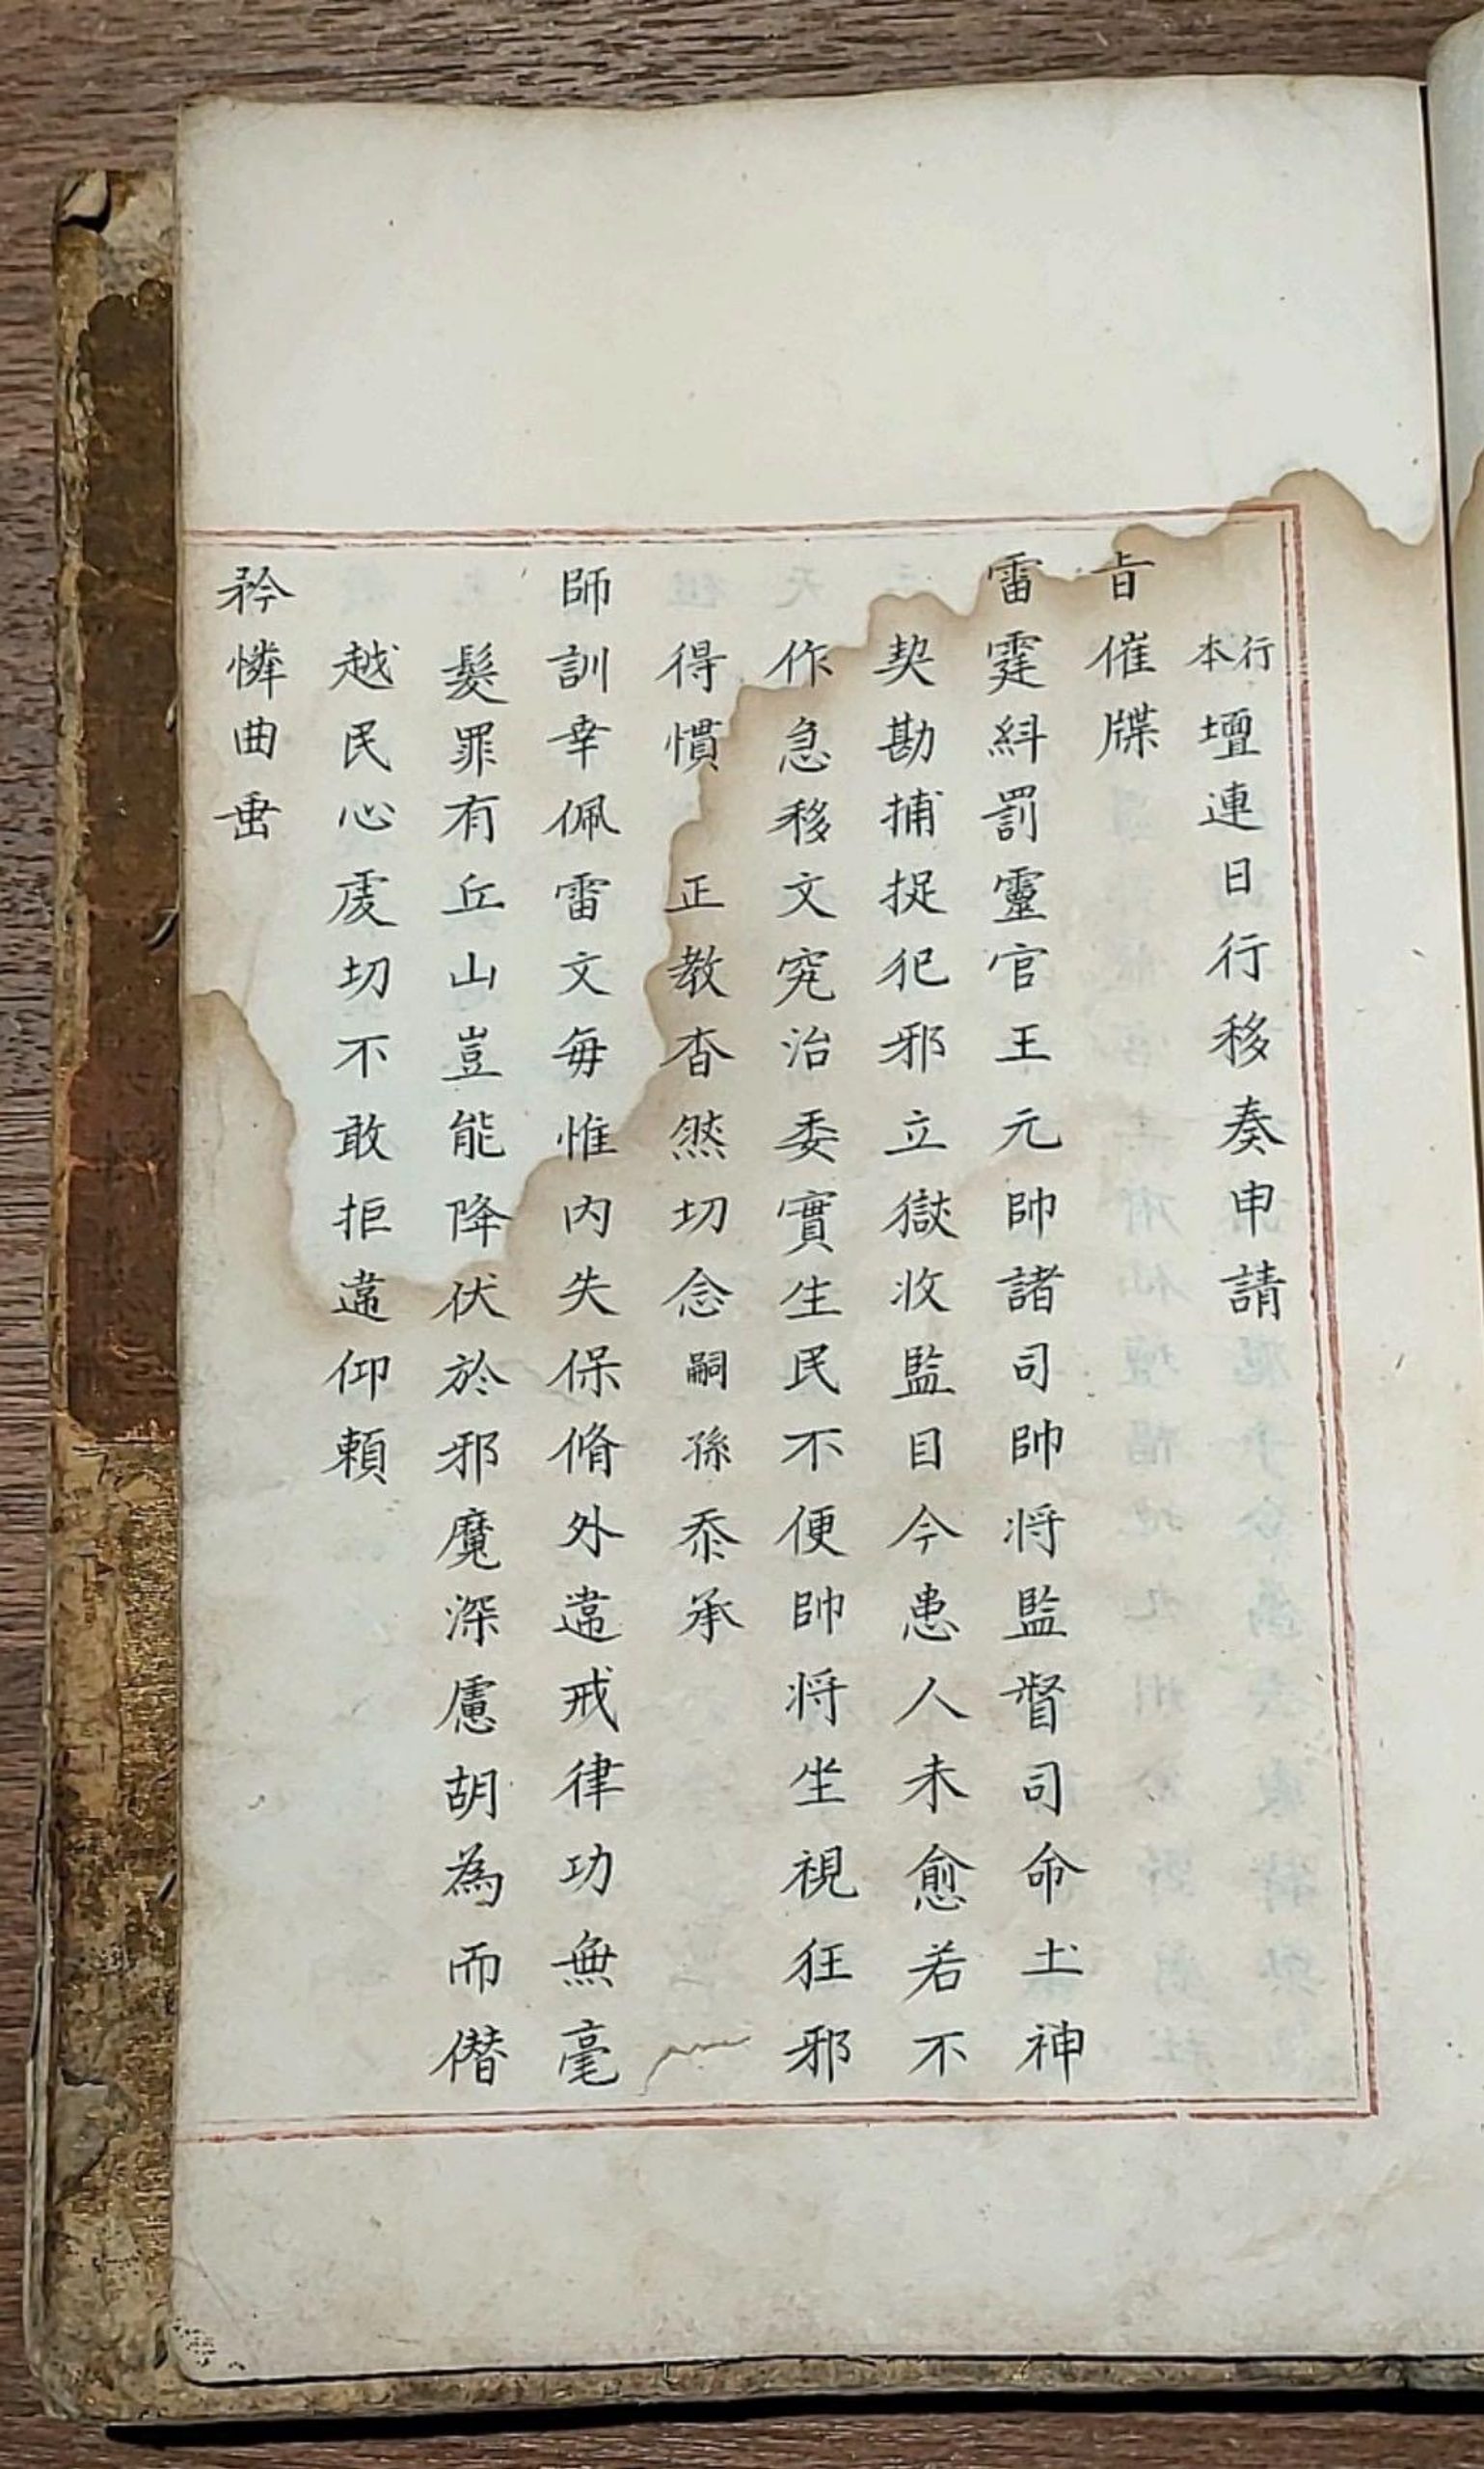 行本壇連日行移奏申請
旨催牒
雷霆糾罰靈官王元帥諸司帥将監督司命土神
契勘捕捉犯邪立獄收監目今患人未愈若不
作急移文究治委實生民不便帥将坐視狂邪
得慣　正教杳然切念嗣孫忝承
師訓幸佩雷文每惟内失保脩外違戒律功無毫
髮罪有丘山豈能降伏於邪魔深慮胡為而僭
越民心虔切不敢拒違仰頼
矜憐曲垂